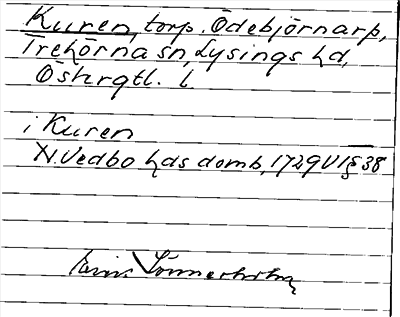 Kuren, torp. Ödebjörnarp,
Trehörna sn, Lysings hd,
Östergtl. l.
i Kuren
N. Vedbo hds domb, 1729 VI § 38